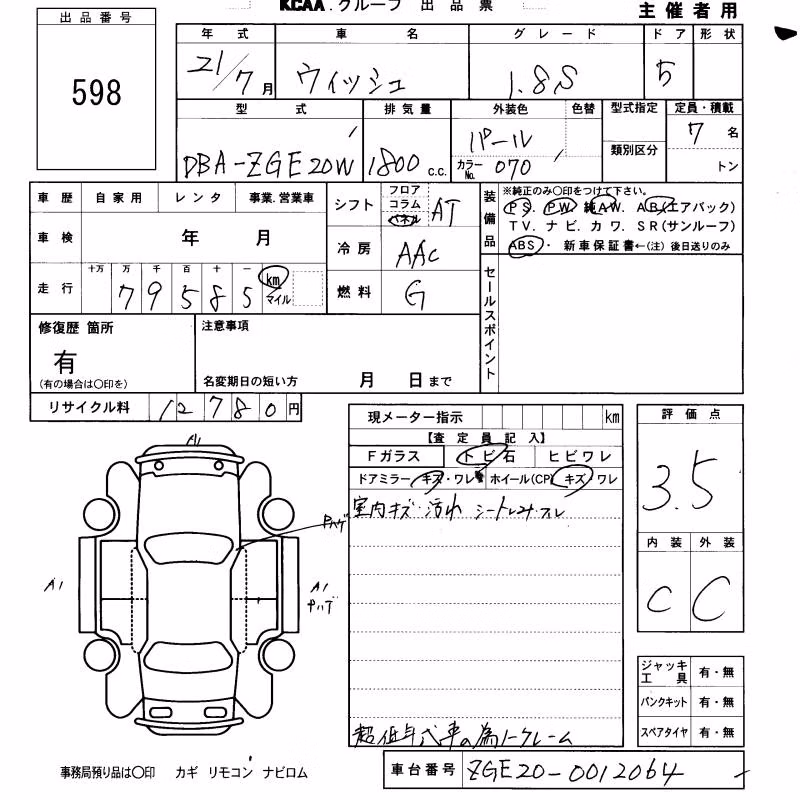 KCAA.グループ 出品票
主催者用
出品番号
598
年式 車名 グレード ドア 形状
21/7月 ウィッシュ 1.8S 5
型式 排気量 外装色 色替 型式指定 定員・積載
DBA-ZGE20W 1800 c.c. パール 類別区分 7名
カラーNo. 070 トン
車歴 自家用 レンタ 事業.営業車
車検 年 月
走行 十万 万 千 百 十 一
79585 km
マイル
シフト フロア コラム パネル AT
冷房 AAC
燃料 G
装備品
※純正のみ○印をつけて下さい。
PS. PW. 純AW. AB(エアバック)
TV. ナビ. カワ. SR(サンルーフ)
ABS・ 新車保証書←(注)後日送りのみ
セールスポイント
修復歴 箇所
有
(有の場合は○印を)
注意事項
名変期日の短い方 月 日まで
リサイクル料 12780円
現メーター指示 km
【査定員記入】
Fガラス トビ石 ヒビワレ
ドアミラー キズ・ワレ ホイール(CP) キズ/ワレ
室内キズ・汚れ シート
超低年式車の為ノークレーム
評価点
3.5
内装 外装
C C
A1
Pハゲ
A1
A1
Pハゲ
ジャッキ工具 有・無
パンクキット 有・無
スペアタイヤ 有・無
事務局預り品は○印 カギ リモコン ナビロム
車台番号 ZGE20-0012064